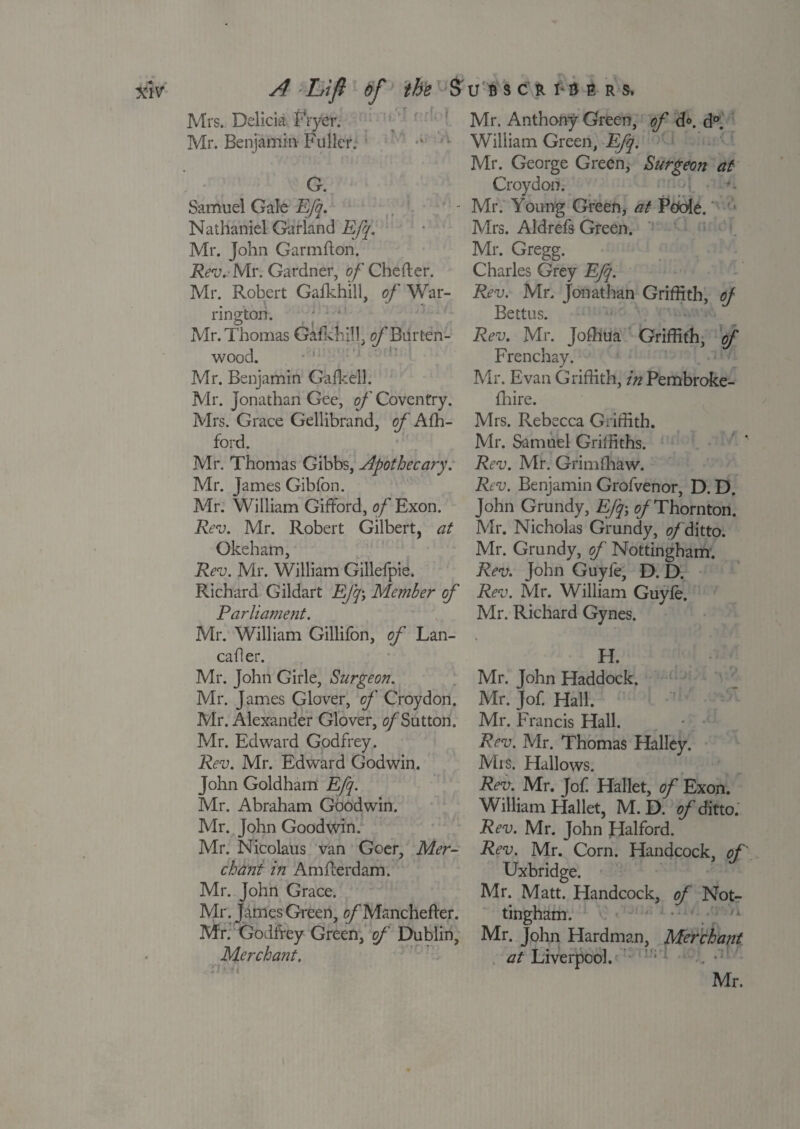 xiv A Liſt of the SUBSCRIBERS.
Mrs. Delicia Fryer.
Mr. Benjamin Fuller.
G.
Samuel Gale Eſq.
Nathaniel Garland Eſq.
Mr. John Garmſton.
Rev. Mr. Gardner, of Cheſter.
Mr. Robert Gaſkhill, of War-
rington.
Mr. Thomas Gaſkhill, of Burten-
wood.
Mr. Benjamin Gaſkell.
Mr. Jonathan Gee, of Coventry.
Mrs. Grace Gellibrand, of Aſh-
ford.
Mr. Thomas Gibbs, Apothecary.
Mr. James Gibſon.
Mr. William Gifford, of Exon.
Rev. Mr. Robert Gilbert, at
Okeham,
Rev. Mr. William Gilleſpie.
Richard Gildart Eſq; Member of
Parliament.
Mr. William Gilliſon, of Lan-
caſter.
Mr. John Girle, Surgeon.
Mr. James Glover, of Croydon.
Mr. Alexander Glover, of Sutton.
Mr. Edward Godfrey.
Rev. Mr. Edward Godwin.
John Goldham Eſq.
Mr. Abraham Goodwin.
Mr. John Goodwin.
Mr. Nicolaus van Goer, Mer-
chant in Amſterdam.
Mr. John Grace.
Mr. James Green, of Mancheſter.
Mr. Godfrey Green, of Dublin,
Merchant.
Mr. Anthony Green, of do. do.
William Green, Eſq.
Mr. George Green, Surgeon at
Croydon.
Mr. Young Green, at Poole.
Mrs. Aldreſs Green.
Mr. Gregg.
Charles Grey Eſq.
Rev. Mr. Jonathan Griffith, of
Bettus.
Rev. Mr. Joſhua Griffith, of
Frenchay.
Mr. Evan Griffith, in Pembroke-
ſhire.
Mrs. Rebecca Griffith.
Mr. Samuel Griffiths.
Rev. Mr. Grimſhaw.
Rev. Benjamin Groſvenor, D. D.
John Grundy, Eſq; of Thornton.
Mr. Nicholas Grundy, of ditto.
Mr. Grundy, of Nottingham.
Rev. John Guyſe, D. D.
Rev. Mr. William Guyſe.
Mr. Richard Gynes.
H.
Mr. John Haddock.
Mr. Joſ. Hall.
Mr. Francis Hall.
Rev. Mr. Thomas Halley.
Mrs. Hallows.
Rev. Mr. Joſ. Hallet, of Exon.
William Hallet, M. D. of ditto.
Rev. Mr. John Halford.
Rev. Mr. Corn. Handcock, of
Uxbridge.
Mr. Matt. Handcock, of Not-
tingham.
Mr. John Hardman, Merchant
at Liverpool.
Mr.